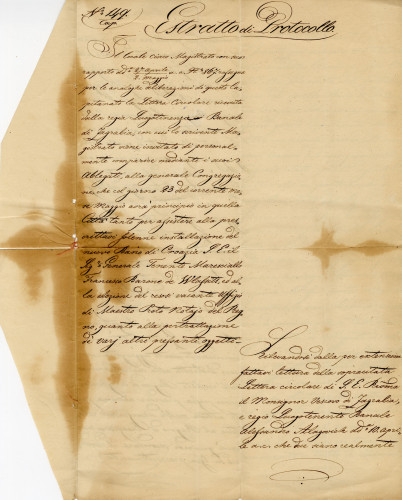 Nº 149.
Cap.
Estratto di Protocollo.
Il locale civico Magistrato con suo
rapporto
per le analoghe deliberazioni di questo Ca-
pitanato la Lettera Circolare ricevuta
dalla regia Luogotenenza Banale
di Zagabria, con cui lo scrivente Ma-
gistrato viene invitato di personal-
mente comparire mediante i suoi
Ablegati, alla generale Congregazio-
ne, che col giorno 23 del corrente me-
se Maggio avrà principio in quella
Città tanto per assistere alla pre-
solenne installazione del
nuovo Bano di Croazia S. E. il
Sig.r Generale Tenente Maresciallo
Francesco Barone de Wlasits, ed al-
la elezione del reso vacante Uffizio
di Maestro Proto Notajo del Reg-
no, quanto alla pertrattazione
di varj altri pressante oggetti.
Rilevandosi dalla per extensum
fattavi lettura della sopracitata
Lettera circolare di S. E. R.
il Monsignor Vescovo di Zagabria,
e regio Luogotenente Banale
Alessandro Alagovich d.to 10 Apri-
le a. c. che due siano realmente